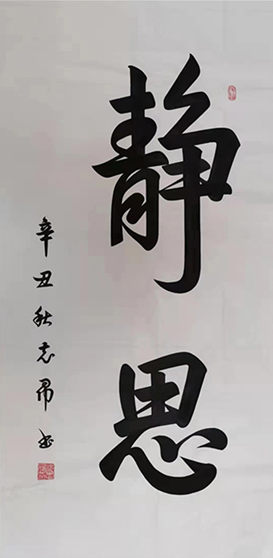 静思
辛丑秋志勇书